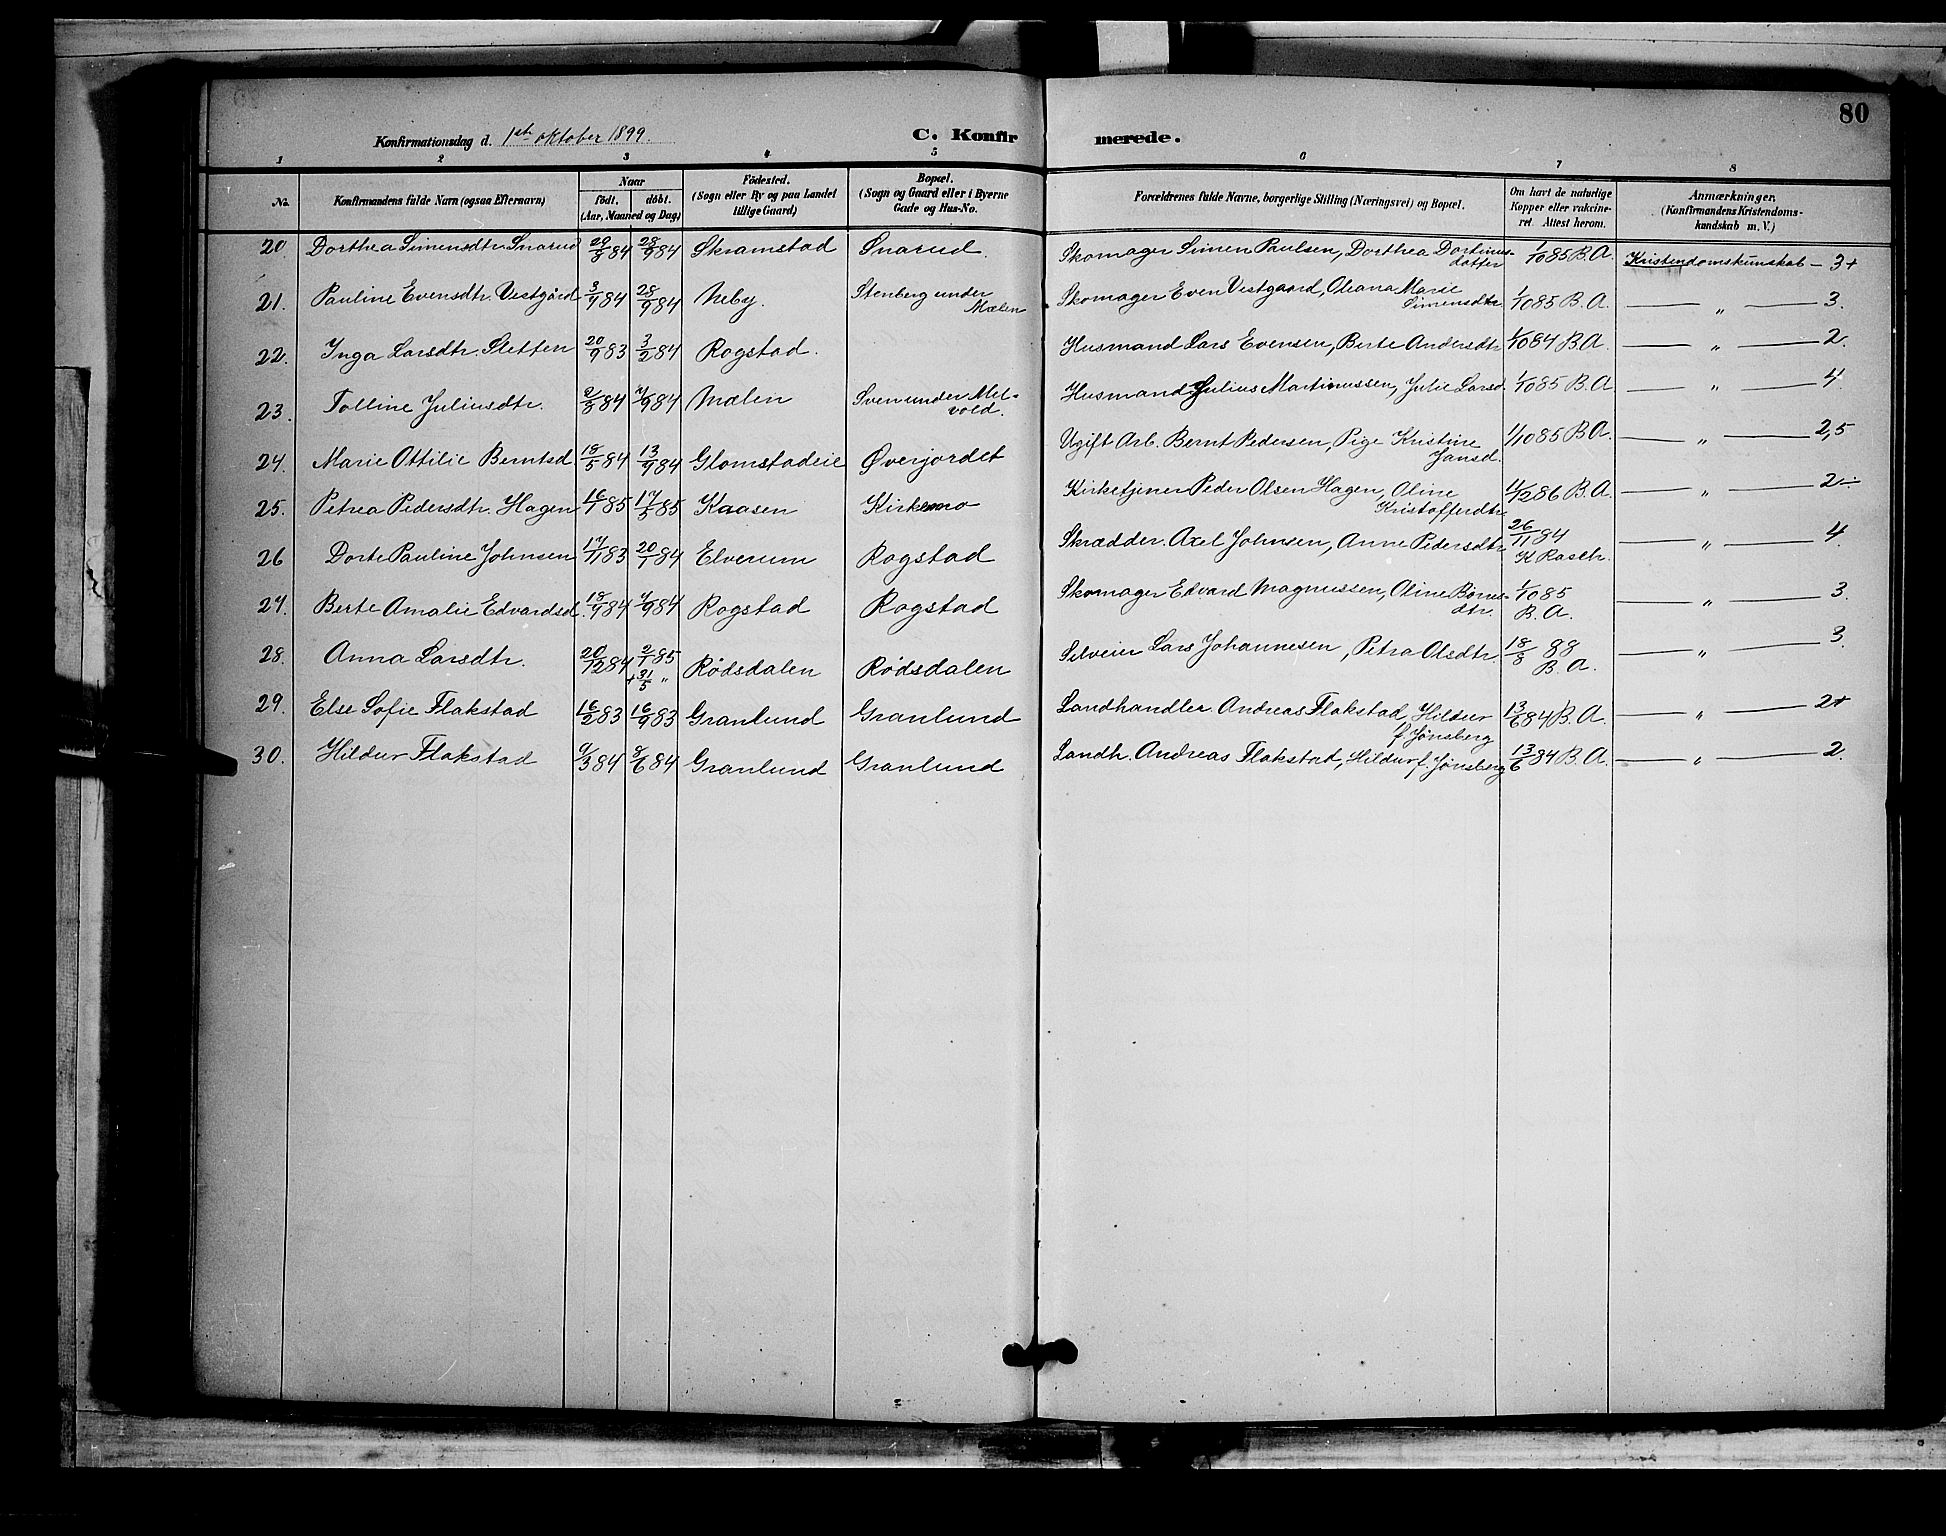 80
Konfirmationsdag d. 1ste oktober 1899.
C. Konfirmerede.
1 2 3 4 5 6 7 8
No. | Konfirmandens fulde Navn (ogsaa Efternavn) | Naar født, døbt. (Aar, Maaned og Dag) | Fødested. (Sogn eller By og paa Landet tillige Gaard) | Bopæl. (Sogn og Gaard eller i Byerne Gade og Hus-No. | Forældrenes fulde Navne, borgerlige Stilling (Næringsvei) og Bopæl. | Om havt de naturlige Kopper eller vakcineret. Attest herom. | Anmærkninger. (Konfirmandens Kristendomskundskab m. V.)
20. Dorthea Simensdtr. Snarud 29/8 84 28/9 84 Skramstad Snarud. Skomager Simen Paulsen, Dorthea Dortinusdatter 1/10 85 B. A. Kristendomskunskab — 3+
21. Pauline Evensdtr. Vestgård 3/9 84 28/9 84 Neby. Stenberg under Mælen Skomager Even Vestgaard, Oliana Marie Simensdtr. 1/10 85 B. A. — " — 3.
22. Inga Larsdtr. Sletten 20/9 83 3/2 84 Rogstad. Husmand Lars Evensen, Berte Andersdtr 1/10 84 B. A. — " — 2.
23. Tolline Juliusdtr. 2/8 84 7/9 84 Mælen Sven under Melvold. Husmand Julius Martinussen, Julie Larsd. 1/10 85 B. A — " — 4.
24. Marie Ottilie Berntsd 18/5 84 13/9 84 Glomstadeie Øverjordet Ugift Arb. Bernt Pedersen, Pige Kristine Jansd. 1/10 85 B. A. — " — 2,5
25. Petrea Pedersdtr. Hagen 16/1 85 17/5 85 Kaasen Kirkemo Kirketjener Peder Olsen Hagen, Oline Kristofferdtr. 11/12 86 B. A. — " — 2÷
26 Dorte Pauline Johnsen 17/11 83 20/1 84 Elverum Rogstad Skrædder. Axel Johnsen, Anne Pedersdtr 26/11 84 K Rasch. — " — 4.
27. Berte Amalie Edvardsd. 18/9 84 7/9 84 Rogstad Rogstad Skomager Edvard Magnussen, Oline Børresdtr. 1/10 85 B. A. — " — 3.
28. Anna Larsdtr. 20/12 84 2/1 85 + 31/5 " Rødsdalen Rødsdalen Selveier Lars Johannesen, Petra Olsdtr. 18/8 88 B. A. — " — 3.
29. Else Sofie Flakstad 16/2 83 16/9 83 Granlund Granlund Landhandler Andreas Flakstad, Hildur f. Jønsberg 13/6 84 B. A. — " — 2+
30. Hildur Flakstad 9/3 84 8/6 84 Granlund Granlund Landh. Andreas Flakstad, Hildur f. Jønsberg 13/6 84 B. A. — " — 2.